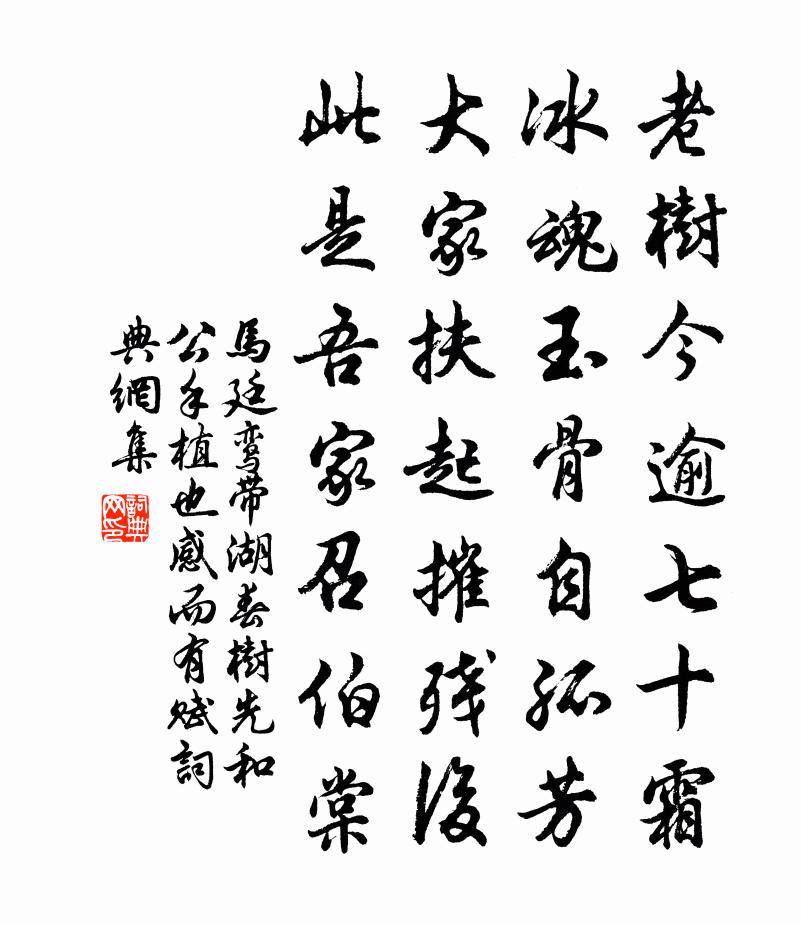 老樹今逾七十霜
冰魂玉骨自孤芳
大家扶起摧残後
此是吾家召伯棠
馬廷鸾带湖春樹先和
公手植也感而有赋詞
典網集
詞典网印